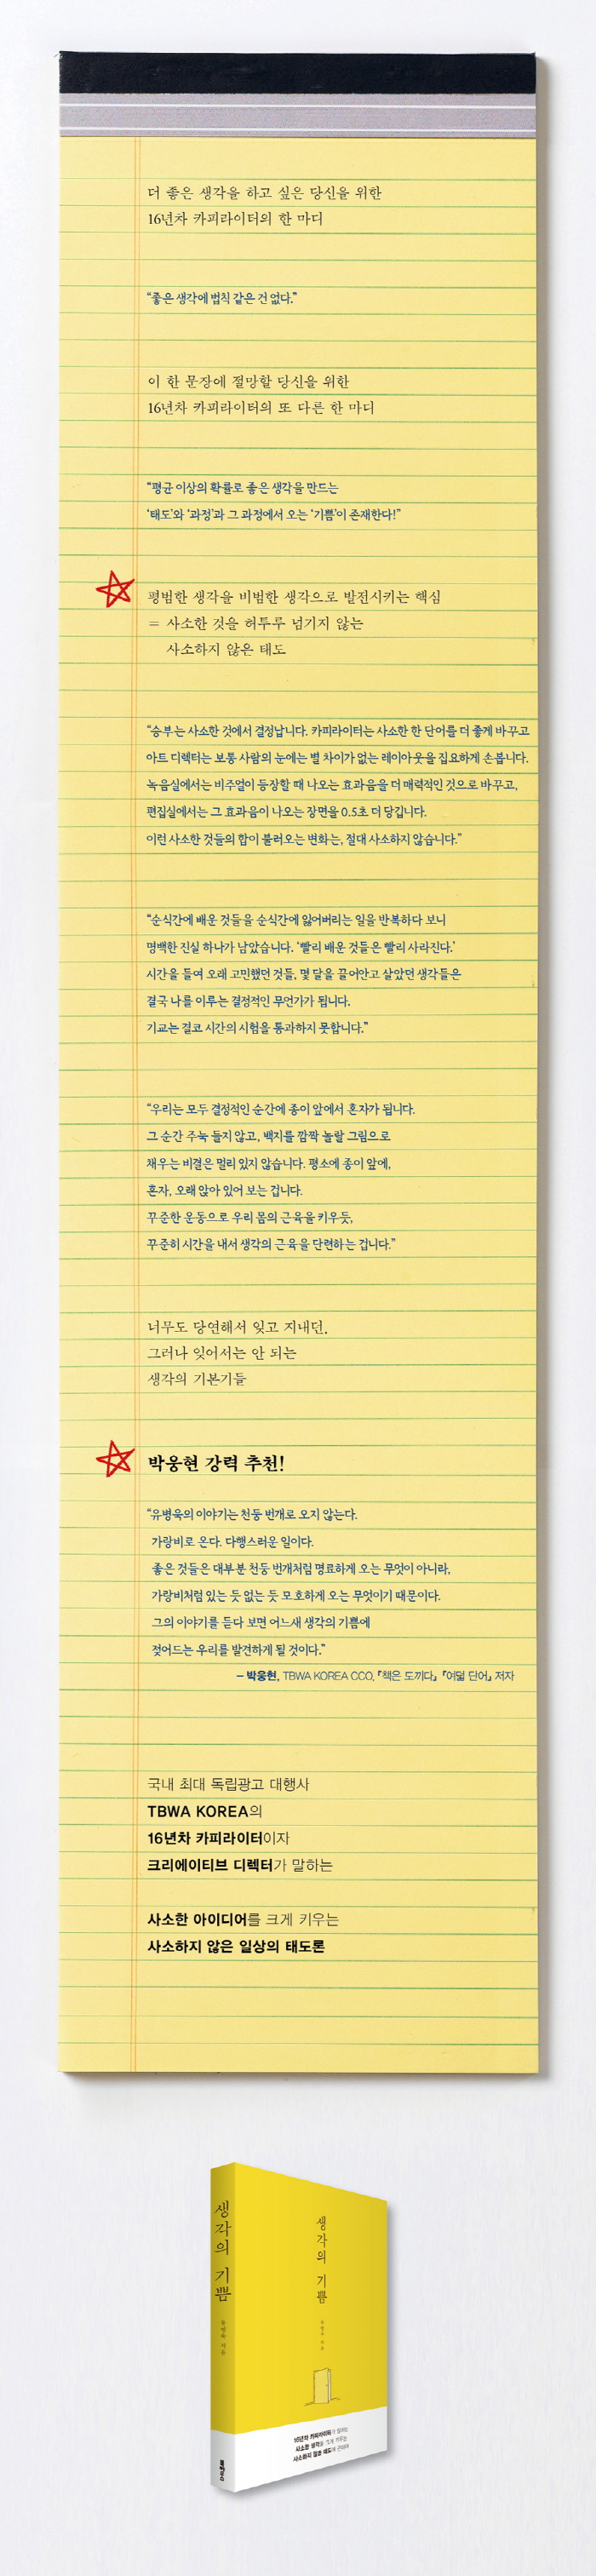 더 좋은 생각을 하고 싶은 당신을 위한
16년차 카피라이터의 한 마디
“좋은 생각에 법칙 같은 건 없다.”
이 한 문장에 절망할 당신을 위한
16년차 카피라이터의 또 다른 한 마디
“평균 이상의 확률로 좋은 생각을 만드는
‘태도’와 ‘과정’과 그 과정에서 오는 ‘기쁨’이 존재한다!”
평범한 생각을 비범한 생각으로 발전시키는 핵심
= 사소한 것을 허투루 넘기지 않는
사소하지 않은 태도
“승부는 사소한 것에서 결정납니다. 카피라이터는 사소한 한 단어를 더 좋게 바꾸고
아트 디렉터는 보통 사람의 눈에는 별 차이가 없는 레이아웃을 집요하게 손봅니다.
녹음실에서는 비주얼이 등장할 때 나오는 효과음을 더 매력적인 것으로 바꾸고,
편집실에서는 그 효과음이 나오는 장면을 0.5초 더 당깁니다.
이런 사소한 것들의 합이 불러오는 변화는, 절대 사소하지 않습니다.”
“순식간에 배운 것들을 순식간에 잃어버리는 일을 반복하다 보니
명백한 진실 하나가 남았습니다. ‘빨리 배운 것들은 빨리 사라진다.’
시간을 들여 오래 고민했던 것들, 몇 달을 끌어안고 살았던 생각들은
결국 나를 이루는 결정적인 무언가가 됩니다.
기교는 결코 시간의 시험을 통과하지 못합니다.”
“우리는 모두 결정적인 순간에 종이 앞에서 혼자가 됩니다.
그 순간 주눅 들지 않고, 백지를 깜짝 놀랄 그림으로
채우는 비결은 멀리 있지 않습니다. 평소에 종이 앞에,
혼자, 오래 앉아 있어 보는 겁니다.
꾸준한 운동으로 우리 몸의 근육을 키우듯,
꾸준히 시간을 내서 생각의 근육을 단련하는 겁니다.”
너무도 당연해서 잊고 지내던,
그러나 잊어서는 안 되는
생각의 기본기들
박웅현 강력 추천!
“유병욱의 이야기는 천둥 번개로 오지 않는다.
가랑비로 온다. 다행스러운 일이다.
좋은 것들은 대부분 천둥 번개처럼 명료하게 오는 무엇이 아니라,
가랑비처럼 있는 듯 없는 듯 모호하게 오는 무엇이기 때문이다.
그의 이야기를 듣다 보면 어느새 생각의 기쁨에
젖어드는 우리를 발견하게 될 것이다.”
– 박웅현, TBWA KOREA CCO, 『책은 도끼다』 『여덟 단어』 저자
국내 최대 독립광고 대행사
TBWA KOREA의
16년차 카피라이터이자
크리에이티브 디렉터가 말하는
사소한 아이디어를 크게 키우는
사소하지 않은 일상의 태도론
생각의 기쁨
유병욱 지음
북하우스
생각의 기쁨
유병욱 지음
16년차 카피라이터가 말하는
사소한 생각을 크게 키우는
사소하지 않은 태도에 관하여